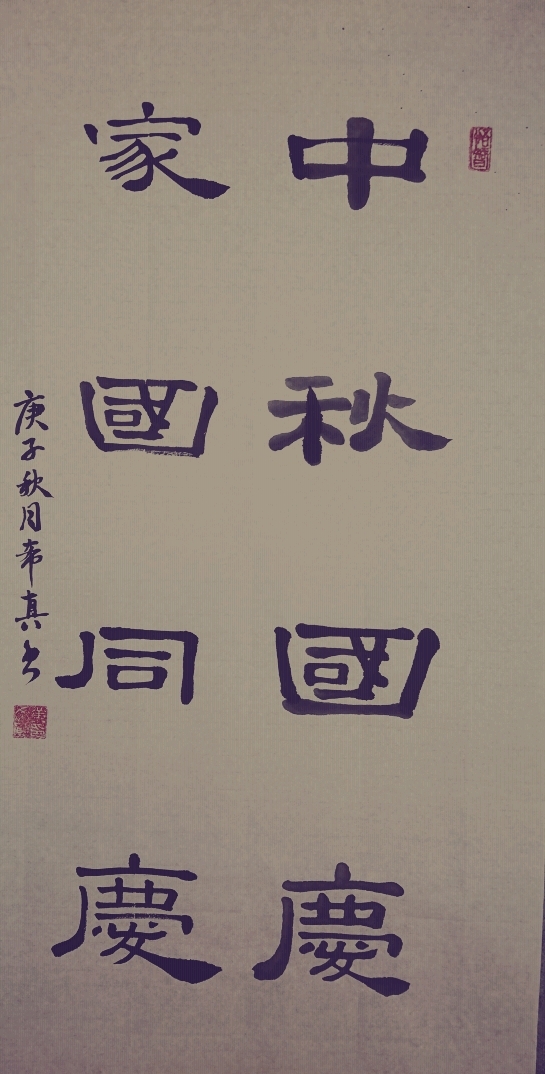 中秋國慶
家國同慶
庚子秋月希真书